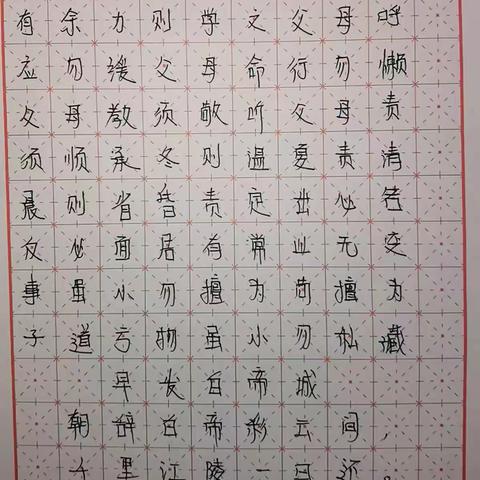 有余力则学文父母呼
应勿缓父母命行勿懒
父母教须敬听父母责
须顺承冬则温夏责清
晨则省昏责定出必告
反必面居有常业无变
事虽小勿擅为苟擅为
子道亏物虽小勿私藏
早发白帝城
朝辞白帝彩云间，
千里江陵一日还。